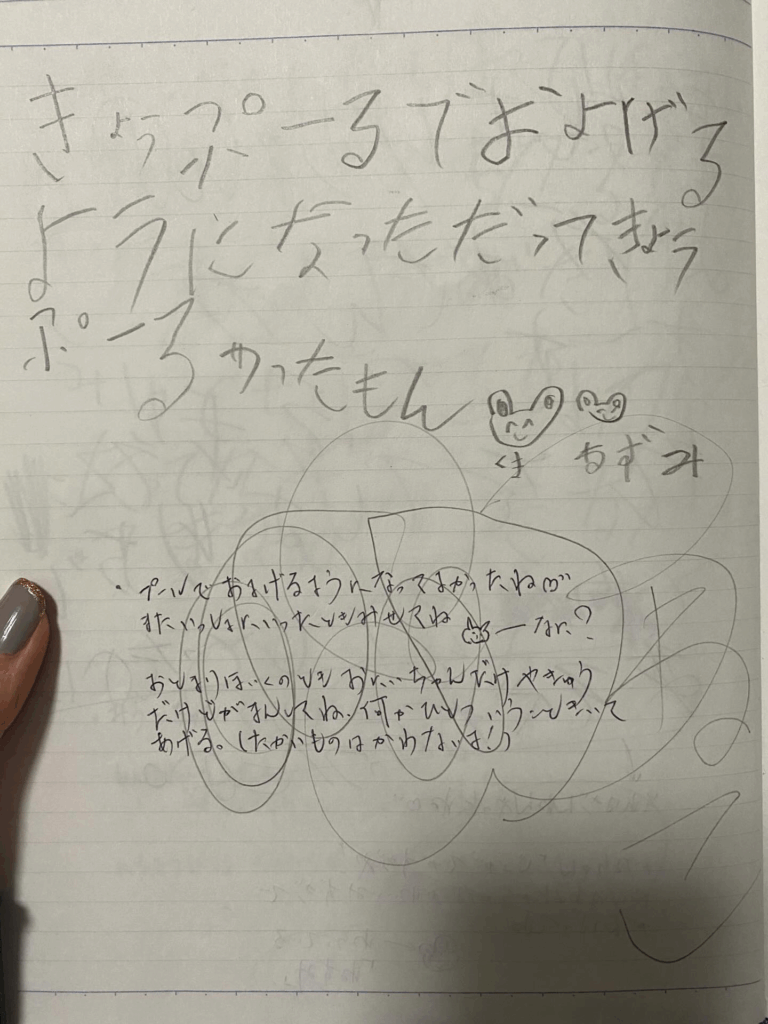 きょうぷーるでおよげる
ようになっただってきょう
ぷーるやったもん
くま あずみ
・プールでおよげるようになってよかったね
またいっしょにいったときみせてね ーなに?
おとまりほいくのとき おにいちゃんだけやきゅう
だけどがまんしてね、何かひとついうこときいて
あげる。(たかいものはかわないよ!)